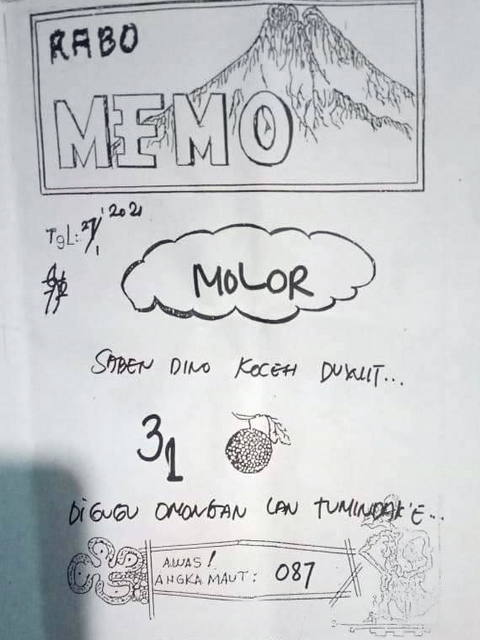 RABO
MEMO
TgL: 27/1 2021
MOLOR
SABEN DINO KOCEH DUWIT...
31
DIGUGU OMONGAN LAN TUMINDAK'E...
AWAS!
ANGKA MAUT: 087